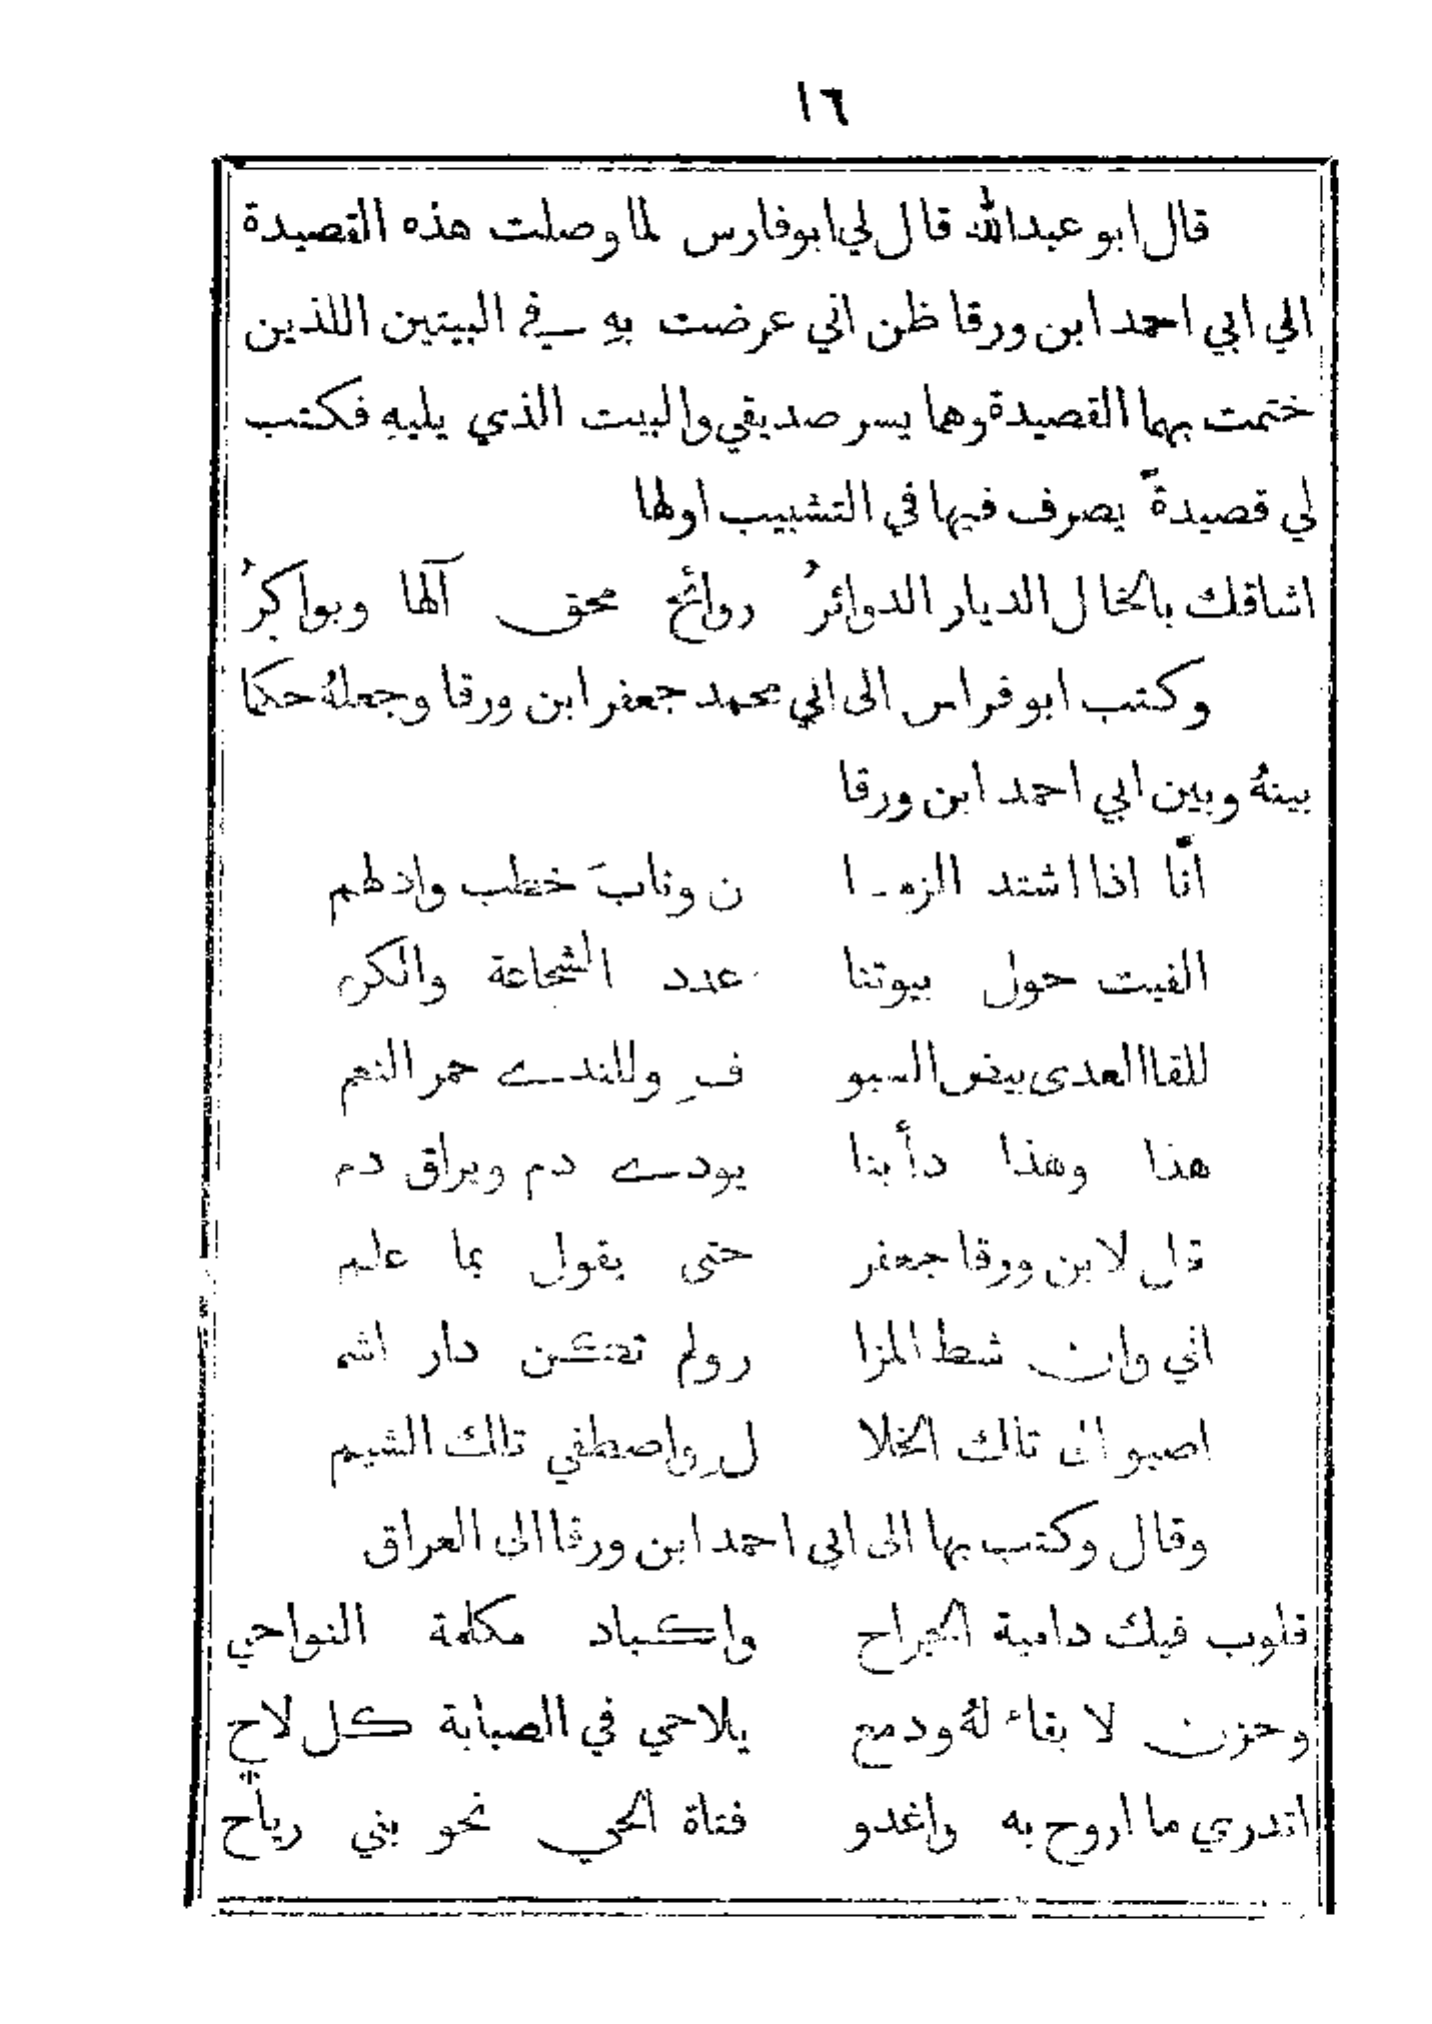 ١٦
قال ابو عبدالله قال لي ابوفارس لما وصلت هذه القصيدة
الي ابي احمد ابن ورقا ظن اني عرضت بهِ في البيتين اللذين
ختمت بهما القصيدة وهما يسر صديقي والبيت الذي يليهِ فكتب
لي قصيدةً يصرف فيها في التشبيب اولها
اشاقك بالخال الديار الدوائرُ روائح محق آلها وبواكرُ
وكتب ابو فراس الى ابي محمد جعفر ابن ورقا وجعلهُ حكما
بينهُ وبين ابي احمد ابن ورقا
انّا اذا اشتد الزمـا ن ونابَ خطب وادلهم
الفيت حول بيوتنا عدد الشجاعة والكرم
للقا العدى بيض السيو فِ وللندى حمر النعم
هذا وهذا دأبنا يودى دم ويراق دم
قل لابن وورقا جعفر حتى يقول بما علم
اني وان شط المزا ر ولم تكن دار اشم
اصبو الى تلك الخلا ل واصطفي تلك الشيم
وقال وكتب بها الى ابي احمد ابن ورقا الى العراق
قلوب فيك دامية الجراح واكباد مكلمة النواحي
وحزن لا بقاء لهُ ودمع يلاحي في الصبابة كل لاحِ
اتدري ما اروح به واغدو فتاة الحي نحو بني رياح